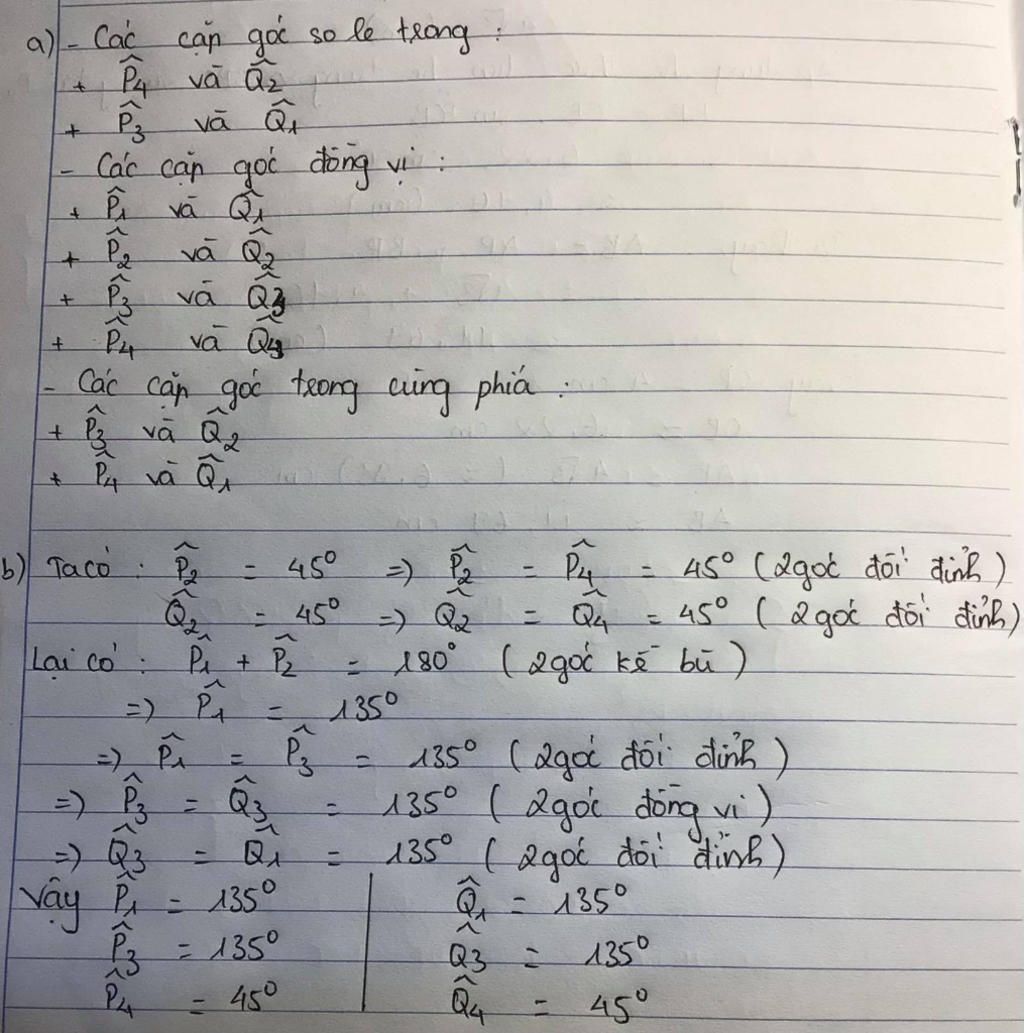 a) - Các cặp góc so le trong :
+ P̂₄ và Q̂₂
+ P̂₃ và Q̂₁
- Các cặp góc đồng vị :
+ P̂₁ và Q̂₁
+ P̂₂ và Q̂₂
+ P̂₃ và Q̂₃
+ P̂₄ và Q̂₄
- Các cặp góc trong cùng phía :
+ P̂₃ và Q̂₂
+ P̂₄ và Q̂₁
b) Ta có : P̂₂ = 45⁰ => P̂₂ = P̂₄ = 45⁰ (2 góc đối đỉnh)
Q̂₂ = 45⁰ => Q̂₂ = Q̂₄ = 45⁰ (2 góc đối đỉnh)
Lại có : P̂₁ + P̂₂ = 180⁰ (2 góc kề bù)
=> P̂₁ = 135⁰
=> P̂₁ = P̂₃ = 135⁰ (2 góc đối đỉnh)
=> P̂₃ = Q̂₃ = 135⁰ (2 góc đồng vị)
=> Q̂₃ = Q̂₁ = 135⁰ (2 góc đối đỉnh)
Vậy P̂₁ = 135⁰ | Q̂₁ = 135⁰
P̂₃ = 135⁰ | Q̂₃ = 135⁰
P̂₄ = 45⁰ | Q̂₄ = 45⁰